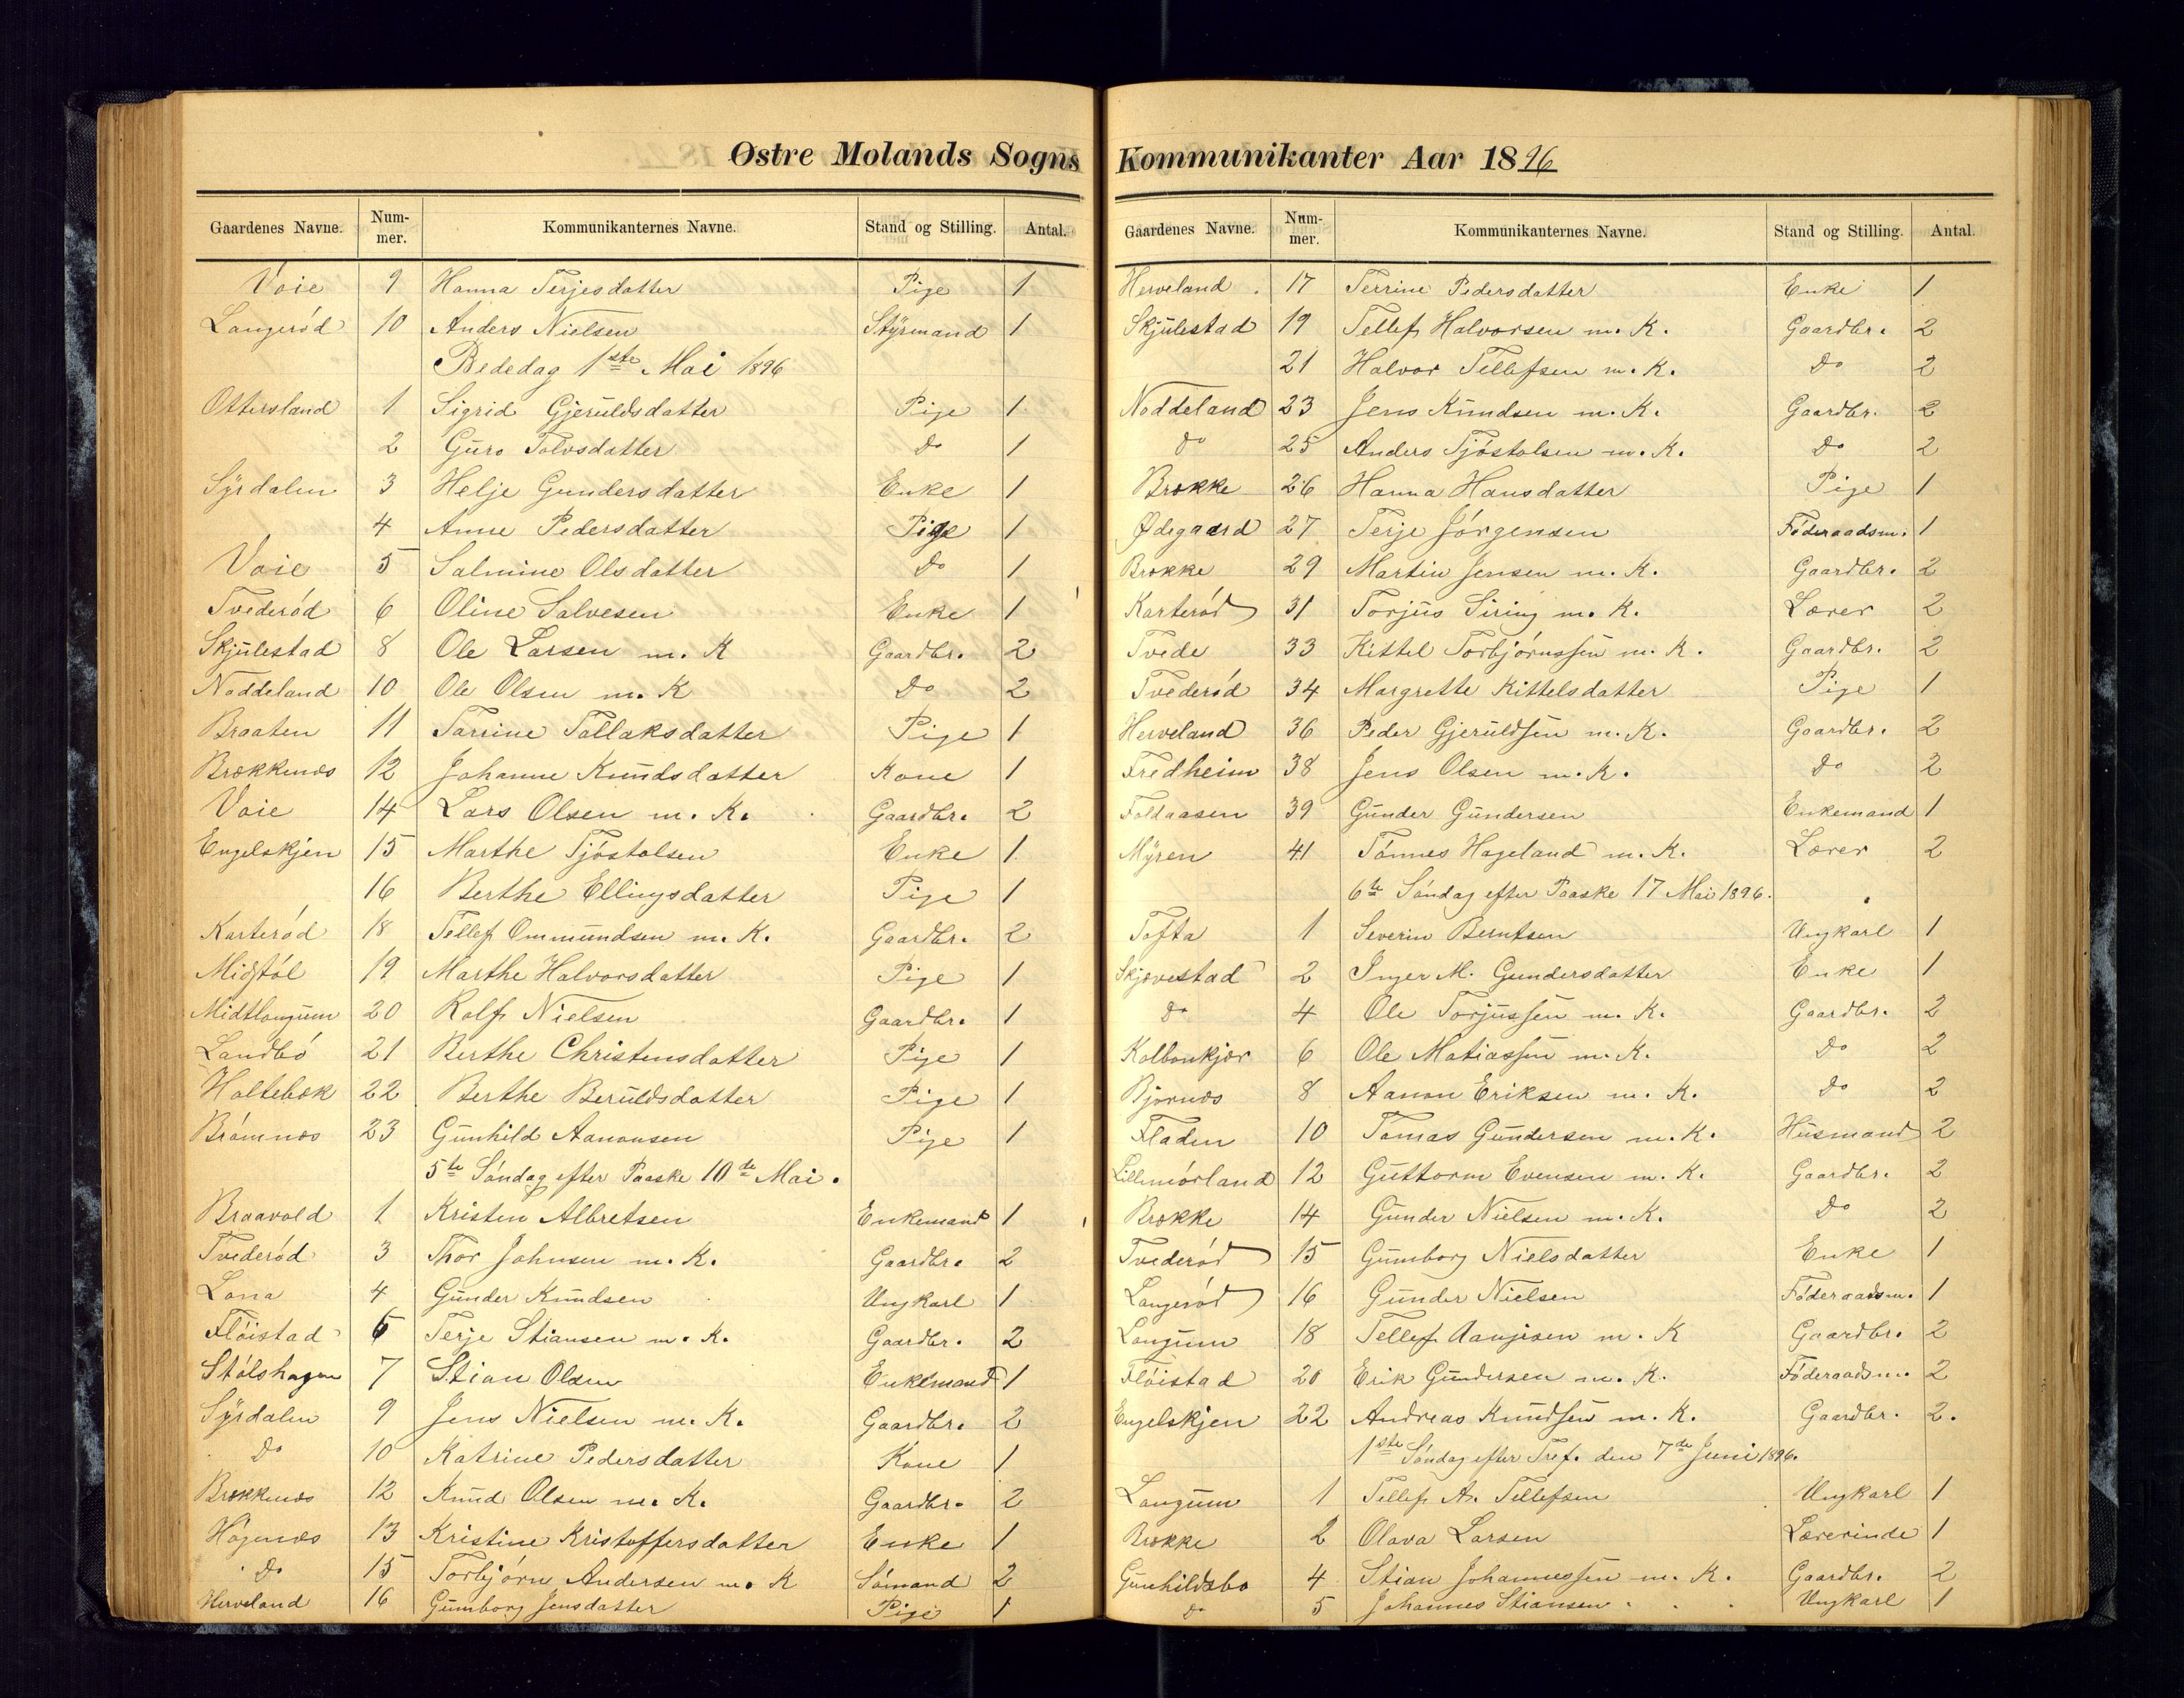 Østre Molands Sogns
Gaardenes Navne. Num-mer. Kommunikanternes Navne. Stand og Stilling. Antal.
Voie 9 Hanna Terjesdatter Pige 1
Langerød 10 Anders Nielsen Styrmand 1
Bededag 1ste Mai 1896
Ottersland 1 Sigrid Gjeruldsdatter Pige 1
2 Guro Tolvsdatter Do 1
Syrdalen 3 Helje Gundersdatter Enke 1
4 Anne Pedersdatter Pige 1
Voie 5 Salmine Olsdatter Do 1
Tvederød 6 Oline Salvesen Enke 1
Skjulestad 8 Ole Larsen m. K Gaardbr. 2
Noddeland 10 Ole Olsen m. K Do 2
Braaten 11 Tarrine Tallaksdatter Pige 1
Brækkenæs 12 Johanne Knudsdatter Kone 1
Voie 14 Lars Olsen m. K. Gaardbr. 2
Engelskjen 15 Marthe Tjøstolsen Enke 1
16 Berthe Ellingsdatter Pige 1
Karterød 18 Tellef Ommundsen m. K. Gaardbr. 2
Midtøl 19 Marthe Halvorsdatter Pige 1
Midtlangum 20 Rolf Nielsen Gaardbr. 1
Landbø 21 Berthe Christensdatter Pige 1
Holtebæk 22 Berthe Beruldsdatter Pige 1
Brømnes 23 Gunhild Aanonsen Pige 1
5te Søndag efter Paaske 10de Mai.
Braavold 1 Kristen Albretsen Enkemand 1
Tvederød 3 Thor Johnsen m. K. Gaardbr. 2
Lona 4 Gunder Knudsen Ungkarl 1
Fløistad 6 Terje Stiansen m. K. Gaardbr. 2
Stølshagen 7 Stian Olsen Enkemand 1
Syrdalen 9 Jens Nielsen m. K. Gaardbr. 2
Do 10 Katrine Pedersdatter Kone 1
Brækkenæs 12 Knud Olsen m. K. Gaardbr. 2
Høgenæs 13 Kristine Kristoffersdatter Enke 1
Do 15 Torbjørn Andersen m. K Sømand 2
Herveland 16 Gunborg Jensdatter Pige 1
Kommunikanter Aar 1896
Gaardenes Navne. Num-mer. Kommunikanternes Navne. Stand og Stilling. Antal.
Herveland 17 Terrine Pedersdatter Enke 1
Skjulestad 19 Tellef Halvorsen m. K. Gaardbr. 2
21 Halvor Tellefsen m. K. Do 2
Noddeland 23 Jens Knudsen m. K. Gaardbr. 2
Do 25 Anders Tjøstolsen m. K. Do 2
Brække 26 Hanna Hansdatter Pige 1
Ødegaard 27 Terje Jørgensen Føderaadsm. 1
Brække 29 Martin Jensen m. K. Gaardbr. 2
Karterød 31 Torjus Siring m. K. Lærer 2
Tvede 33 Kittel Torbjørnssen m. K. Gaardbr. 2
Tvederød 34 Margrette Kittelsdatter Pige 1
Herveland 36 Peder Gjeruldsen m. K. Gaardbr. 2
Fredheim 38 Jens Olsen m. K. Do 2
Foldaasen 39 Gunder Gundersen Enkemand 1
Myren 41 Tønnes Hageland m. K. Lærer 2
6te Søndag efter Paaske 17 Mai 1896.
Tofta 1 Severin Berntsen Ungkarl 1
Skjævestad 2 Inger M. Gundersdatter Enke 1
Do 4 Ole Torjussen m. K. Gaardbr. 2
Kolbonkjær 6 Ole Matiassen m. K. Do 2
Bjørnes 8 Aanon Eriksen m. K. Do 2
Fladen 10 Tomas Gundersen m. K. Husmand 2
Lillemørland 12 Guttorm Evensen m. K. Gaardbr. 2
Brække 14 Gunder Nielsen m. K. Do 2
Tvederød 15 Gunborg Nielsdatter Enke 1
Langerød 16 Gunder Nielsen Føderaadsm. 1
Langum 18 Tellef Aanjesen m. K Gaardbr. 2
Fløistad 20 Erik Gundersen m. K. Føderaadsm. 2
Engelskjen 22 Andreas Knudsen m. K. Gaardbr. 2.
1ste Søndag efter Tref. den 7de Juni 1896.
Langum 1 Tellef A. Tellefsen Ungkarl 1
Brække 2 Olava Larsen Lærerinde 1
Gunhildsbo 4 Stian Johannessen m. K. Gaardbr. 2
Do 5 Johannes Stiansen Ungkarl 1